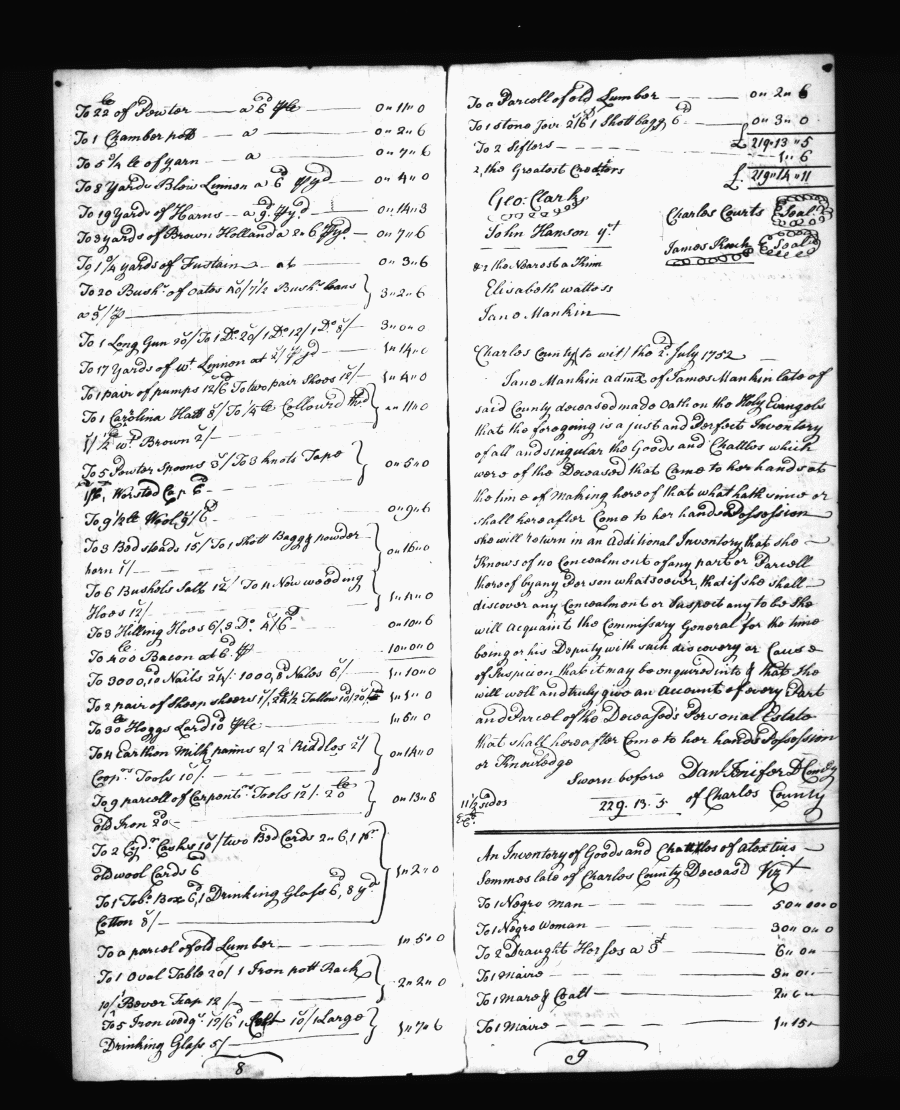 To 22 lb of Pewter — a 6d ⅌ lb — 0 " 11 " 0
To 1 Chamber pott — a — 0 " 2 " 6
To 5 3/4 lb of yarn — a — 0 " 7 " 6
To 8 Yards Blew Linnen a 6d ⅌ yd — 0 " 4 " 0
To 19 Yards of Harns — a 9d ⅌ yd — 0 " 14 " 3
To 3 yards of Brown Holland a 2 " 6 ⅌ yd — 0 " 7 " 6
To 1 3/4 yards of Fustain — a 6 — 0 " 3 " 6
To 20 Bushs. of oates 40/ 7 1/2 Bushs. beans
a 3/ ⅌ — 3 " 2 " 6
To 1 Long Gun 20/ To 1 Do. 20/ 1 Do. 12/ 1 Do. 8/ — 3 " 0 " 0
To 17 Yards of wt. Linnen at 2/ ⅌ yd — 1 " 14 " 0
To 1 pair of pumps 12/6 To two pair Shoes 12/ — 1 " 4 " 0
To 1 Carolina Hatt 8/ To 1/4 lb Collourd thd
1/ 1/2 wtd Brown 2/ — " 11 " 0
To 5 Pewter Spoons 3/ To 3 knots Tape
1/6, Worsted Cap 6d — 0 " 5 " 0
To 9 1/2 lb Wool 9/6 — 0 " 9 " 6
To 3 Bedsteads 15/ To 1 Shott Bagg & powder
horn 1/ — 0 " 16 " 0
To 6 Bushels Salt 12/ To 4 New weeding
Hoes 12/ — 1 " 4 " 0
To 3 Hilling Hoes 6/, 3 Do. 4/6 — 0 " 10 " 6
To 400 lb Bacon at 6d ⅌ — 10 " 0 " 0
To 3000, 10 Nails 24/. 1000, 8 Nales 6/ — 1 " 10 " 0
To 2 pair of Sheep sheers 1/, 24 1/2 Tallow 10/20/ — 1 " 1 " 0
To 30 lb Hoggs Lard 10 ⅌ lb — 1 " 5 " 0
To 4 Earthen Milk panns 2/ 2 Riddles 2/
Coops. Tools 10/ — 0 " 14 " 0
To 9 parcell of Carpentrs. Tools 12/. 20 lb
old Iron 20 — 0 " 13 " 8
To 2 Cydr. Casks 10/ two Bed Cords 2 " 6, 1 pr.
old wool Cards 6d
To 1 Tobo. Box 6d, 1 Drinking Glass 6d, 8 yd
Cotton 8/ — 1 " 2 " 0
To a parcel of old Lumber — 1 " 5 " 0
To 1 Oval Table 20/ 1 Iron pott Rack
10/ Bever Trap 12/ — 2 " 2 " 0
To 5 Iron wedgs. 19/6 1 10/ 1 Large
Drinking Glass 5/ — 1 " 7 " 6
8
To a Parcell of old Lumber — 0 " 2 " 6
To 1 stone Jar 2/6 1 Shott bagg 6d — 0 " 3 " 0
To 2 Sifters — £ 219 " 13 " 5
1 " 6
2, the Greatest Creditors £ 219 " 14 " 11
Geo: Clark
John Hanson yst Charles Courts Seal
James Keech Seal
& 2 the Nearest a Kinn
Elisabeth wattess
Jane Mankin
Charles County to wit/ the 2d. July 1752
Jane Mankin admx of James Mankin late of
said County deceased made Oath on the Holy Evangels
that the foregoing is a just and Perfect Inventory
of all and singular the Goods and Chattles which
were of the Deceased that Came to her hands at
the time of Making hereof that what hath since or
shall hereafter Come to her hands Possession
she will return in an Additional Inventory that she
Knows of no Concealment of any part or Parcell
thereof by any Person whatsoever, that if she shall
discover any Concealment or Suspect any to be She
will acquaint the Commissary General for the time
being or his Deputy with such discovery or Cause
of Suspicion that it may be enquired into & that she
will well and truly give an Account of every Part
and Parcel of the Deceased's Personal Estate
that shall hereafter Come to her hands Possession
or Knowledge
Sworn before Danl Jenifer D Comry
11 1/2 sides 229. 13. 5. of Charles County
Exd.
An Inventory of Goods and Chattles of alextius
Semmes late of Charles County Deceasd Vizt
To 1 Negro Man — 50 " 00 " 0
To 1 Negro Woman — 30 " 0 " 0
To 2 Draught Horses a 3£ — 6 " 0 "
To 1 Maire — 3 " 0 "
To 1 Mare & Coalt — 2 "
To 1 Maire — 1 " 15
9